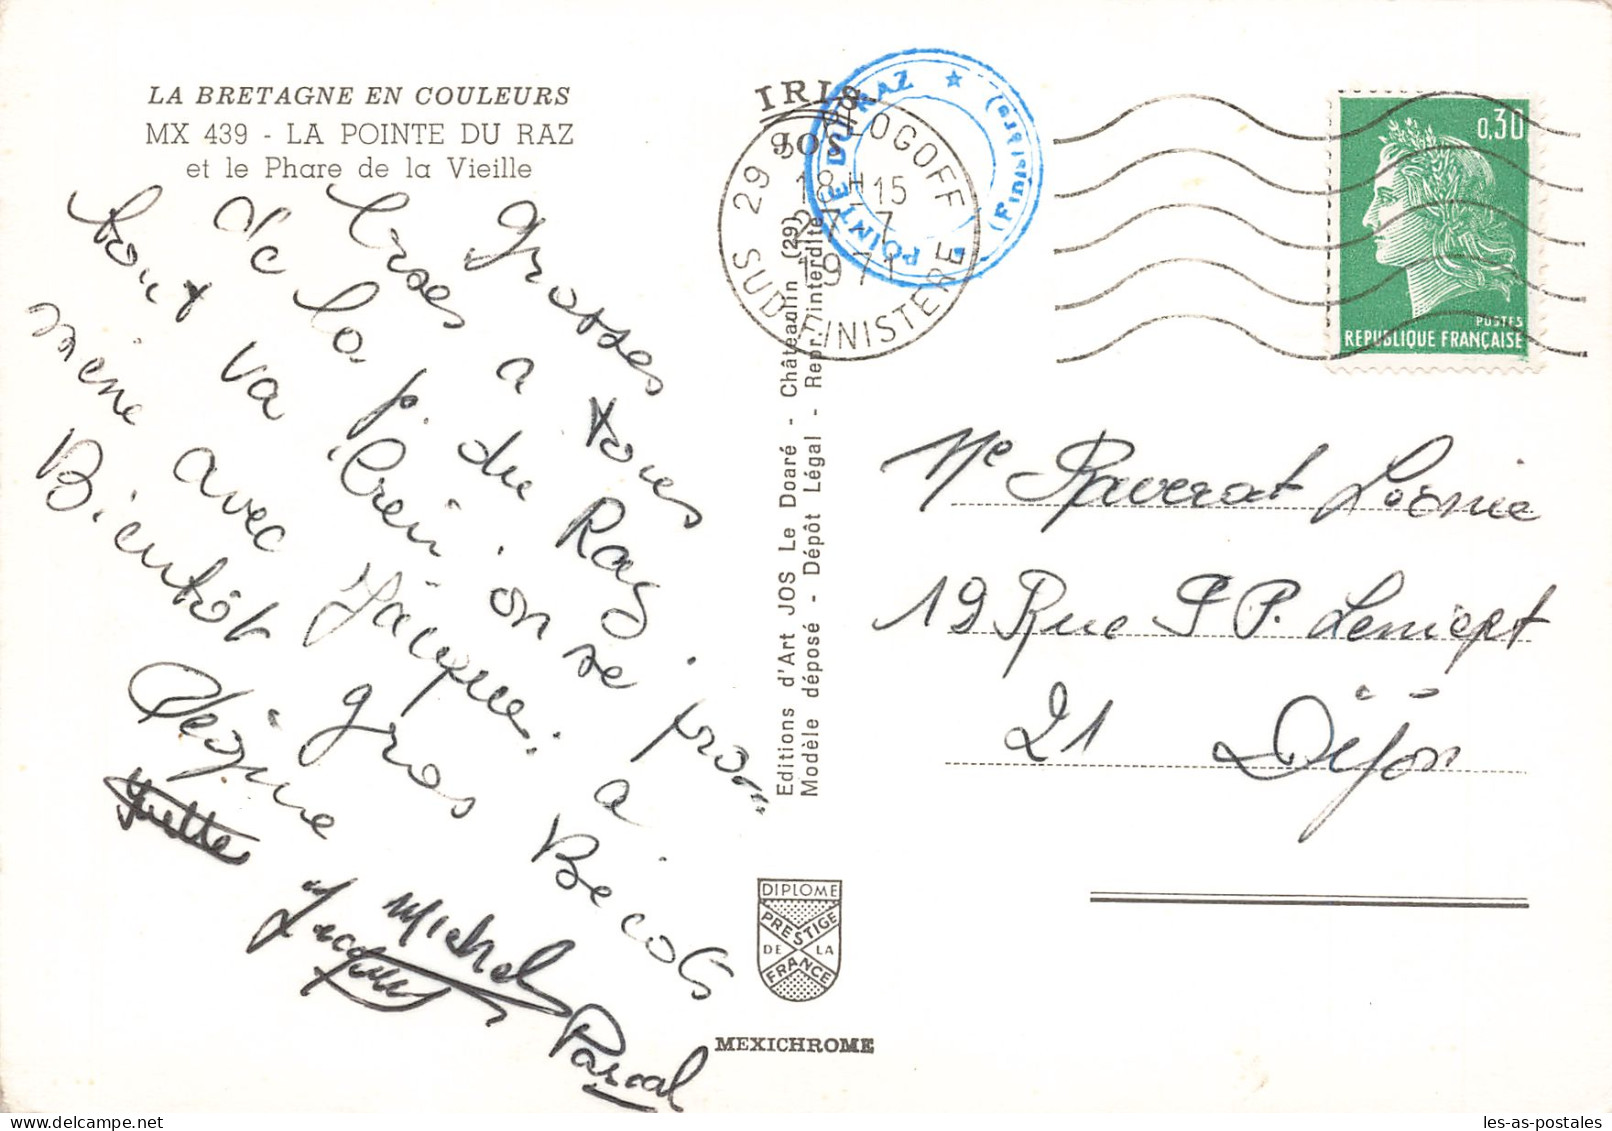 LA BRETAGNE EN COULEURS
MX 439 - LA POINTE DU RAZ
et le Phare de la Vieille
Grosses
bises a tous
de la p. du Raz
tout va bien. on se prom
mène avec Jacques. a
Bientôt gros Bécots
Régine
Yvette
Michel
Jacques
Pascal
IRIS
JOS
29 PLOGOFF
18 H 15
27-7
1971
SUD-FINISTERE
POINTE DU RAZ ★ (Finistère)
Editions d'Art JOS Le Doaré - Châteaulin (29)
Modèle déposé - Dépôt Légal - Repr. interdite
DIPLOME
PRESTIGE
DE LA
FRANCE
MEXICHROME
0,30
POSTES
REPUBLIQUE FRANÇAISE
Me Raverat Léonie
19 Rue
21 Dijon
les-as-postales